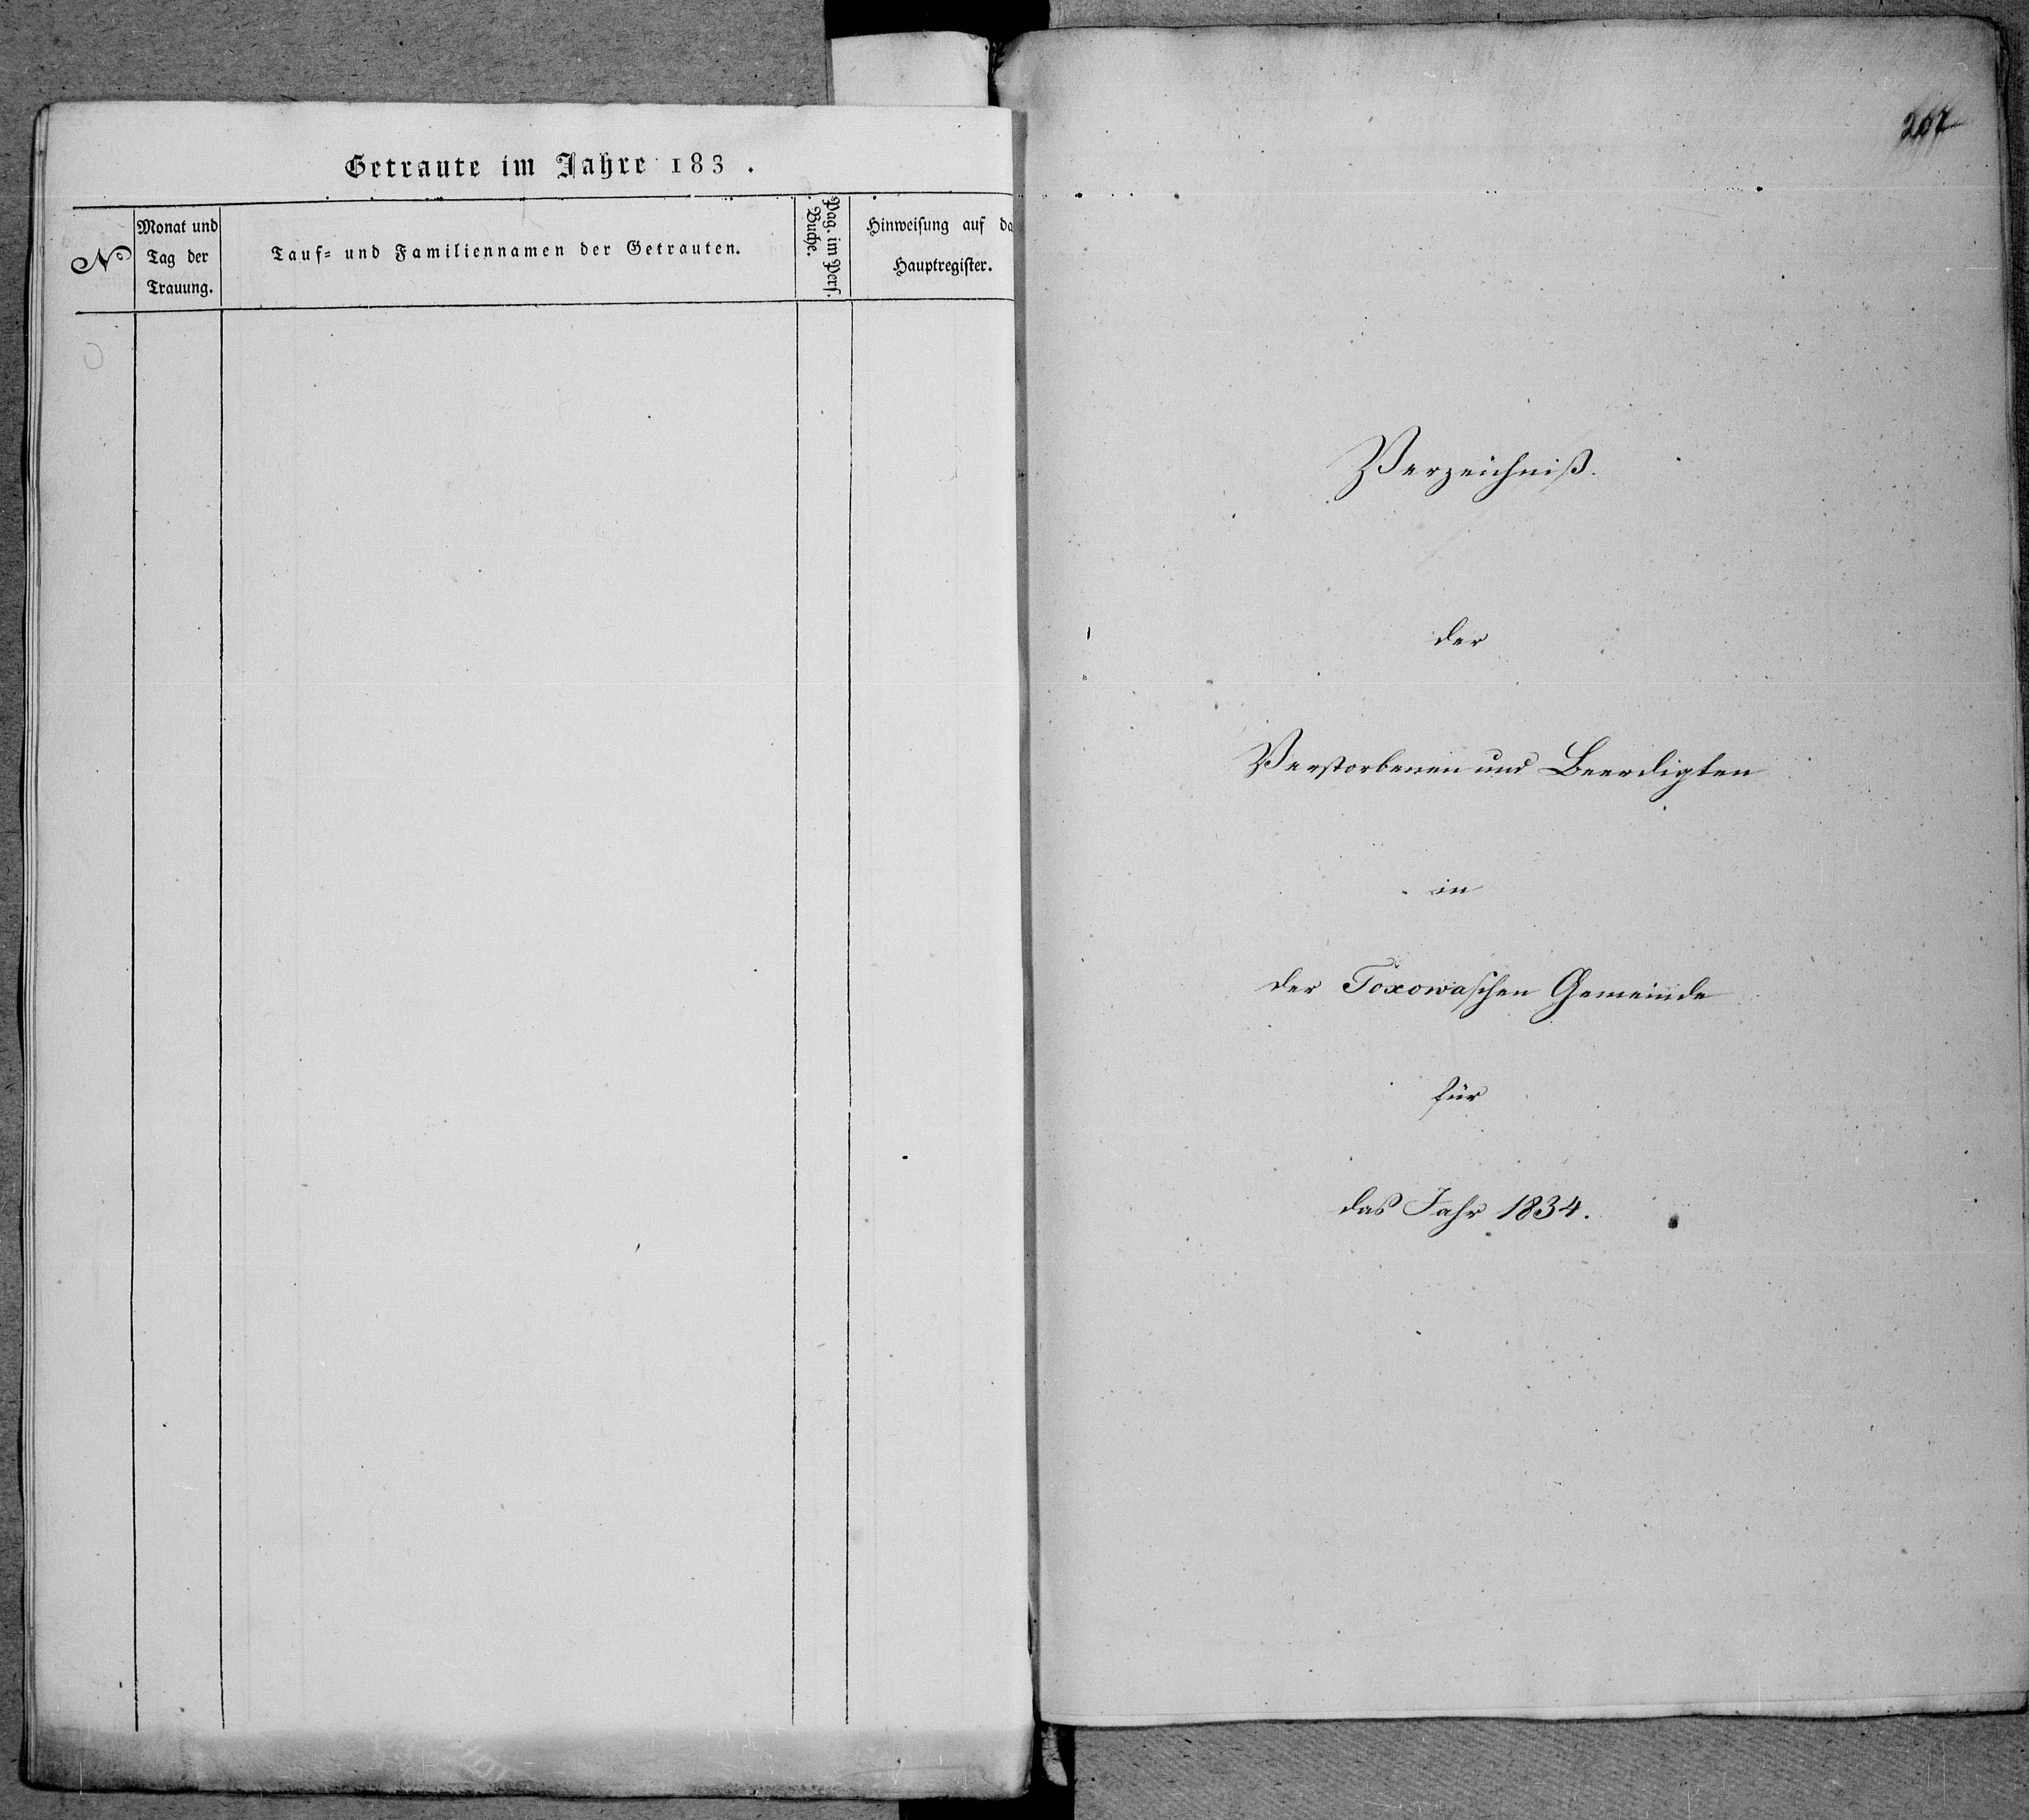 Getraute im Jahre 183 .
No
Monat und
Tag der
Trauung.
Tauf= und Familiennamen der Getrauten.
Pag. im Pers.
Buche.
Hinweisung auf da
Hauptregister.
Verzeichniß.
der
Verstorbenen und Beerdigten
in
der Toxowaschen Gemeinde
für
das Jahr 1834.